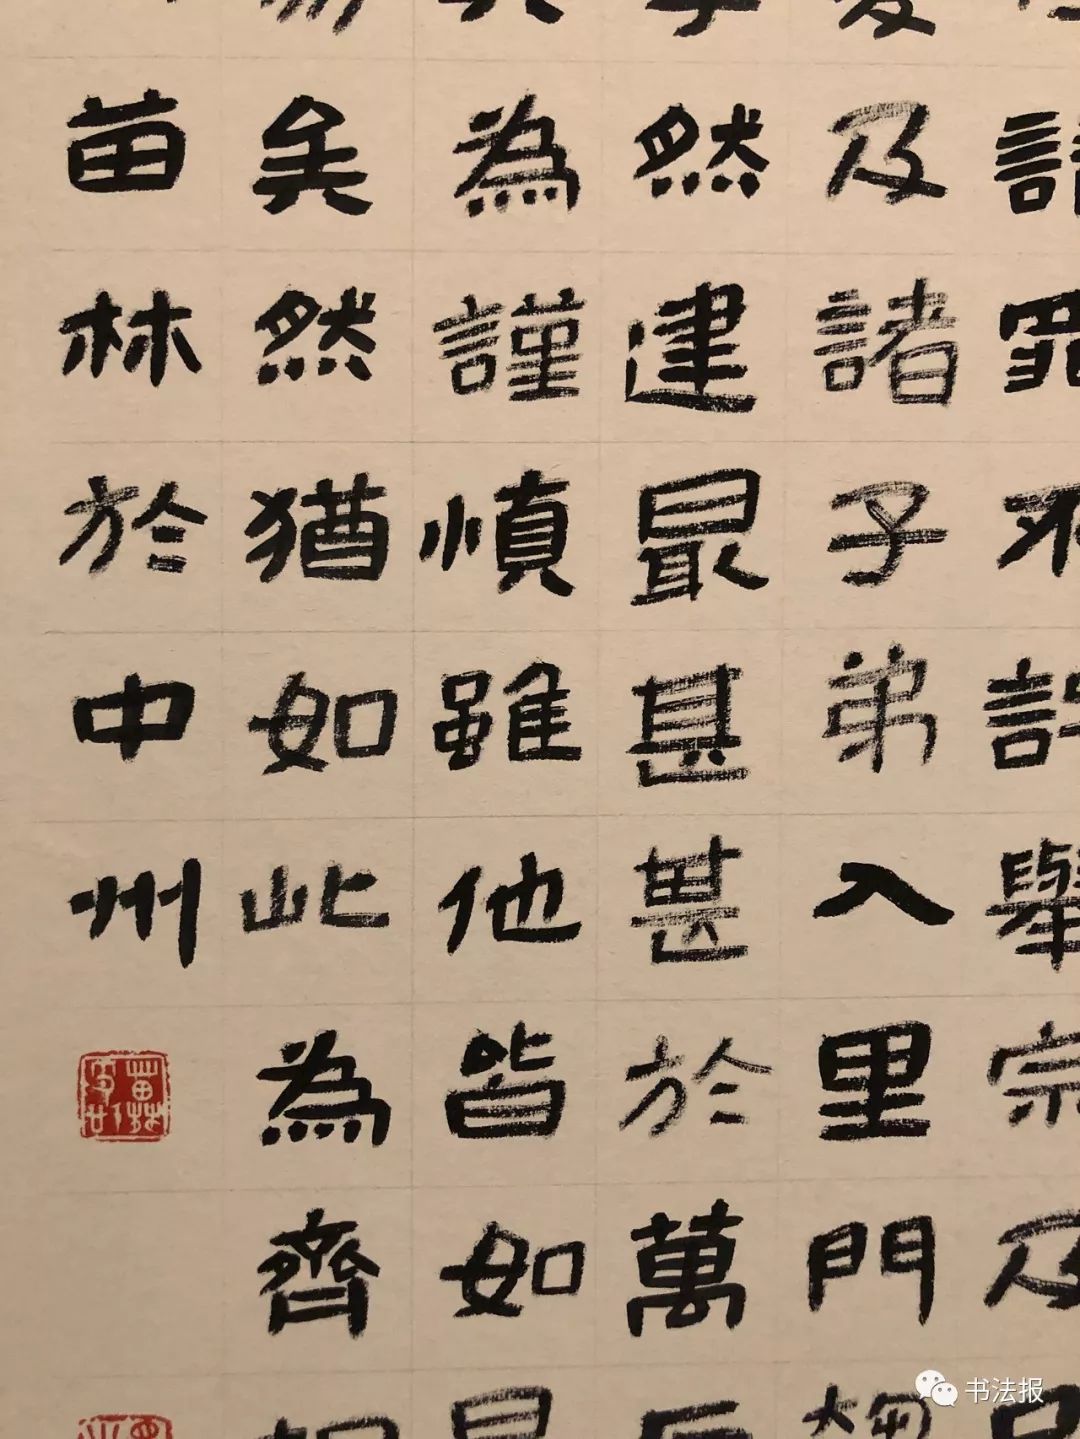 諸罪不許舉宗及
及諸子弟入里門趨
然建最甚甚於萬石
為謹慎雖他皆如是
矣然猶如此為齊相
苗林於中州
书法报